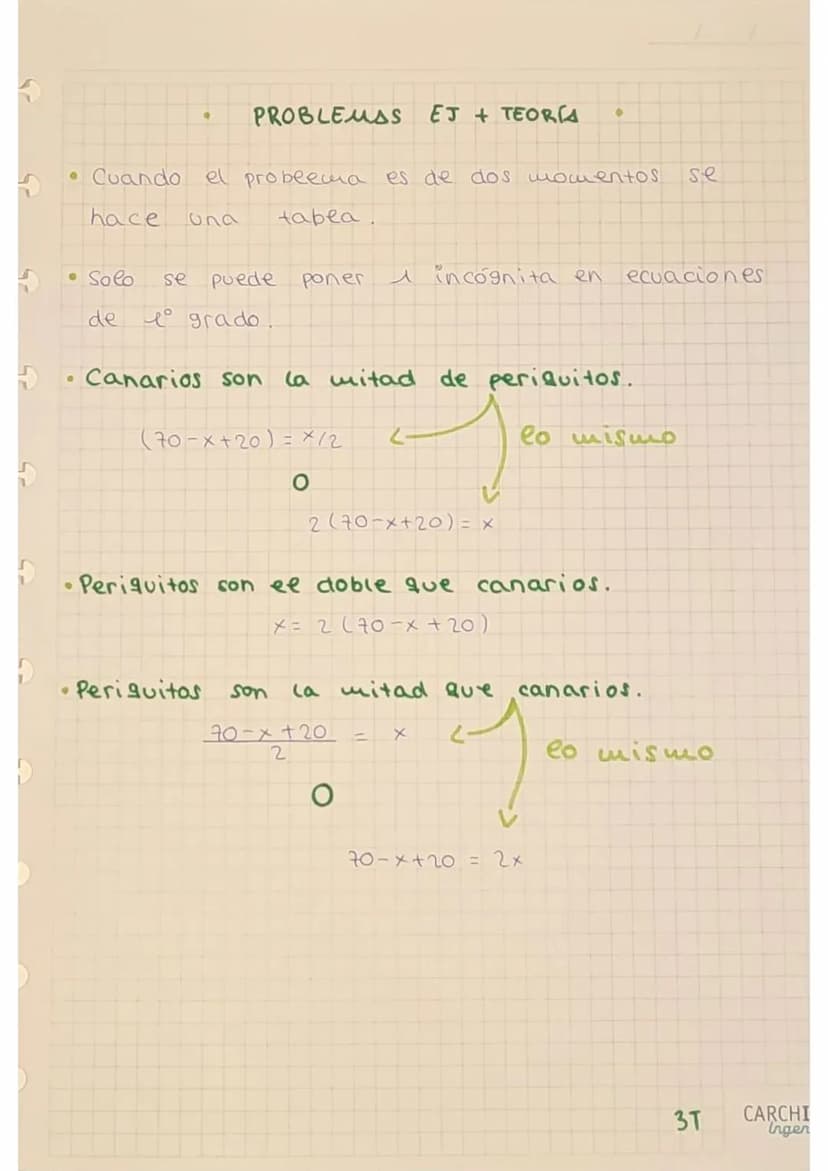 • PROBLEMAS EJ + TEORÍA •
• Cuando el problema es de dos momentos se
hace una tabla.
• Solo se puede poner 1 incógnita en ecuaciones
de 1º grado.
• Canarios son la mitad de periquitos.
(70-x+20) = x/2
lo mismo
O
2(70-x+20) = x
• Periquitos son el doble que canarios.
x = 2(70-x+20)
• Periquitos son la mitad que canarios.
70-x+20 = x
2
lo mismo
O
70-x+20 = 2x
3T
CARCHI
Ingen